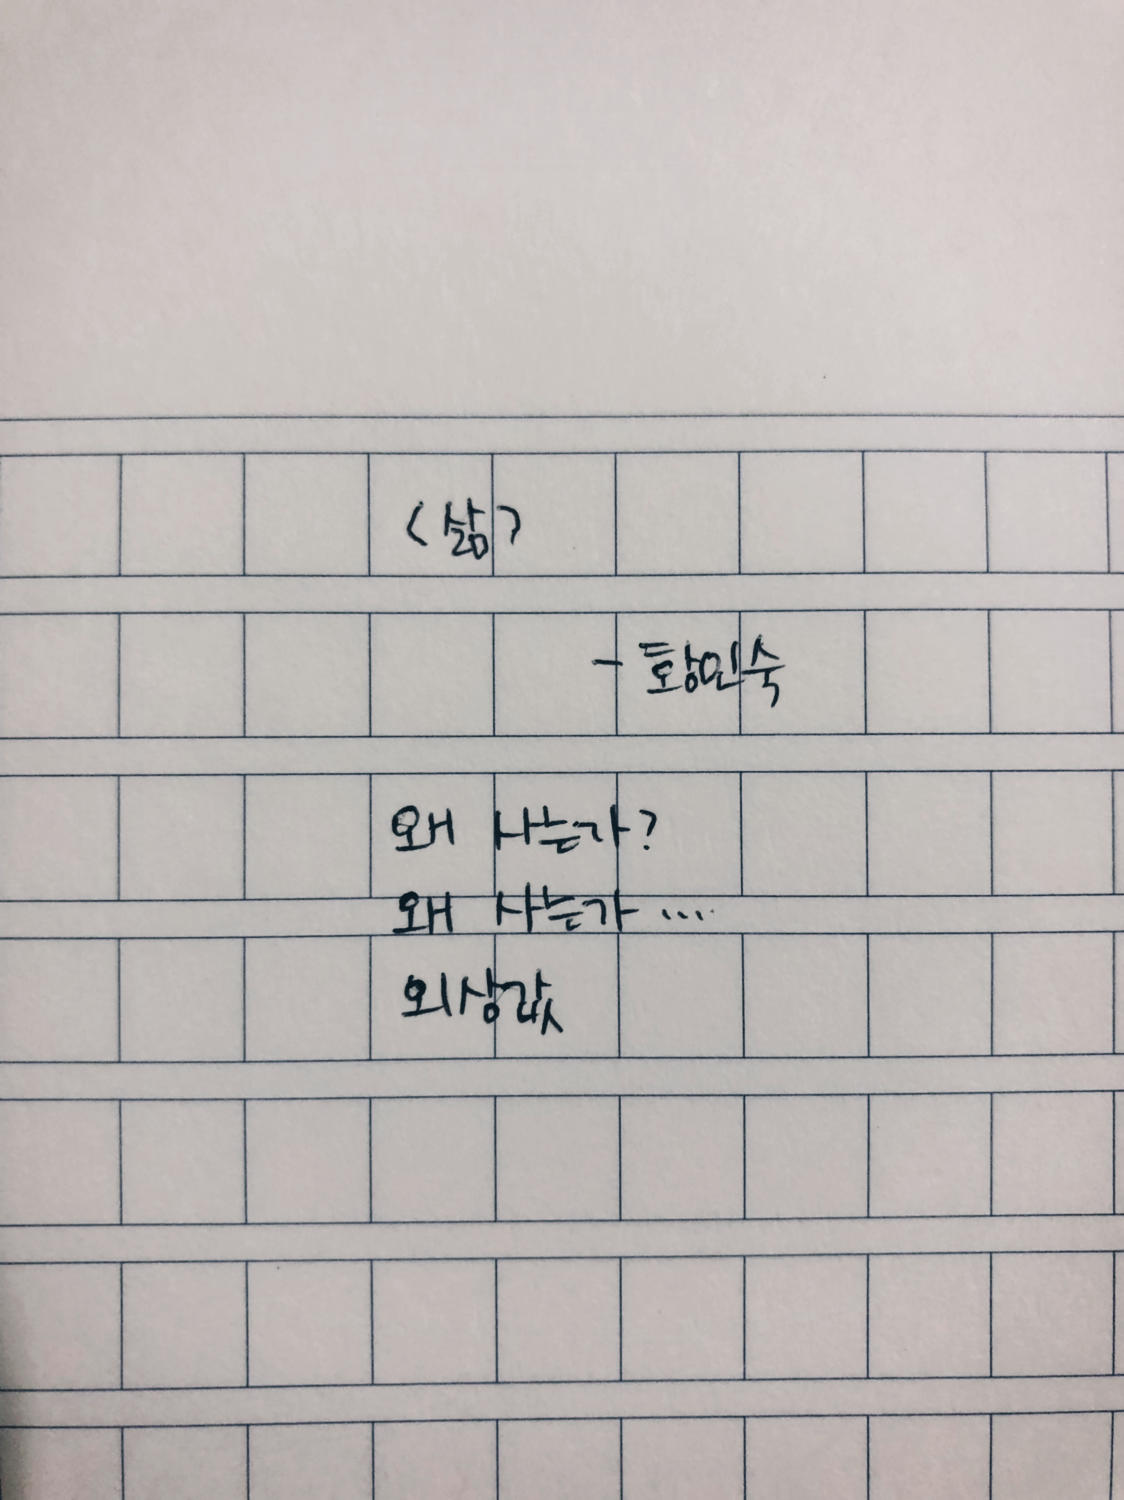 <삶>
- 황인숙
왜 사는가?
왜 사는가...
외상값